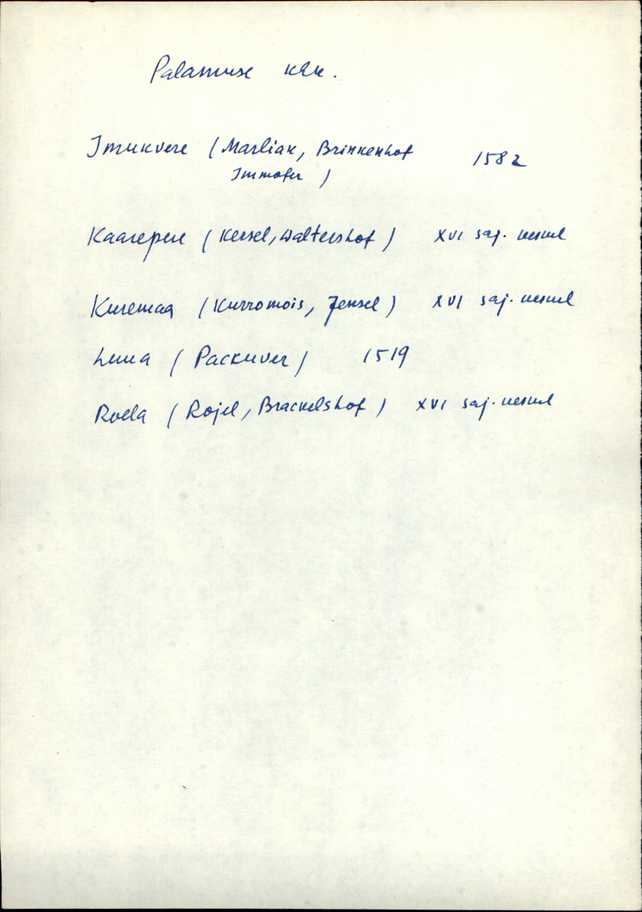 Palamuse khk.
Imukvere (Marliak, Brinkenhof 1582
Immofer)
Kaarepere (Kersel, Waltershof) XVI saj. keskel
Kuremaa (Kurromois, Jensel) XVI saj. keskel
Luua (Packuver) 1519
Roela (Rojel, Brackelshof) XVI saj. keskel